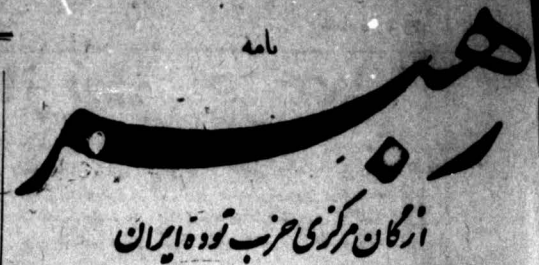 نامه
رهبر
ارگان مرکزی حزب توده ایران